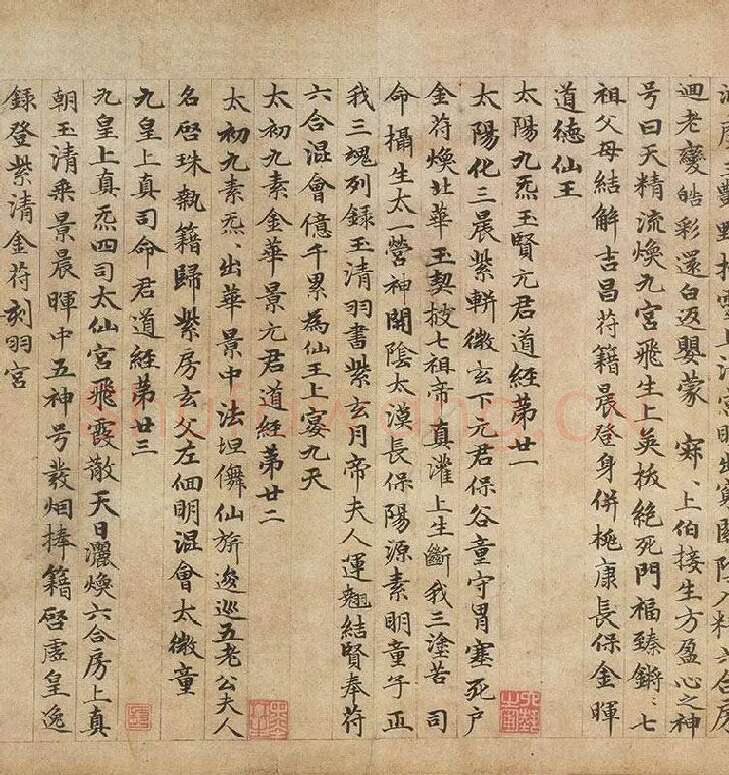 迴老變皓彩還白返嬰蒙寂〻上伯接生方盈心之神
号曰天精流煥九宮飛生上英校絕死門福臻鏘〻七
祖父母結解吉昌苻籍晨登身併桃康長保金暉
道德仙王
太陽九炁玉賢元君道經第廿一
太陽化三晨紫軿微玄下元君保谷童守胃塞死户
金苻煥北華玉契校七祖帝真灌上生斷我三塗苦司
命攝生太一營神開陰太漠長保陽源素明童子正
我三魂列錄玉清羽書紫玄月帝夫人運翹結賢奉苻
六合混會億千累為仙王上宴九天
太初九素金華景元君道經第廿二
太初九素炁出華景中法坦儛仙旂逡巡五老公夫人
名啓珠執籍歸紫房玄父左佪明混會太微童
九皇上真司命君道經第廿三
九皇上真炁四司太仙宮飛霞散天日灑煥六合房上真
朝玉清乘景晨暉中五神号叢烟捧籍啓虛皇逸
錄登紫清金苻刻羽宮
shufawang.cn